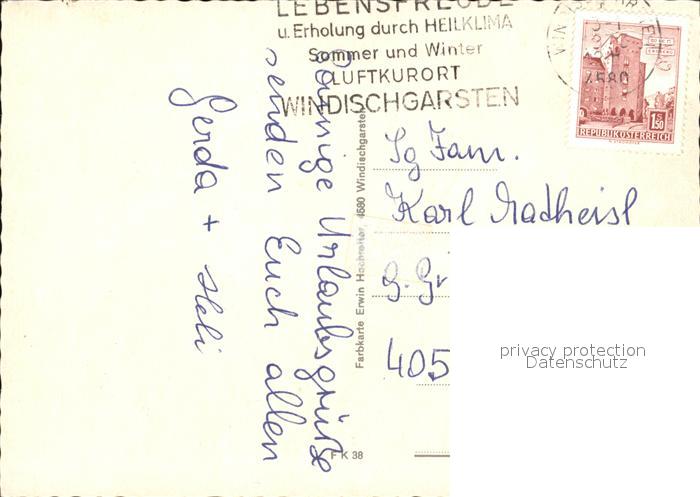 LEBENSFREUDE
u. Erholung durch HEILKLIMA
Sommer und Winter
LUFTKURORT
WINDISCHGARSTEN
4580
1.50
S
REPUBLIK ÖSTERREICH
Sonnige Urlaubsgrüße
senden Euch allen
Gerda + Heli
Farbkarte Erwin Hochreiter, 4580 Windischgarsten
FK 38
Sg Fam.
Karl Madheisl
G. Gr
405
privacy protection
Datenschutz